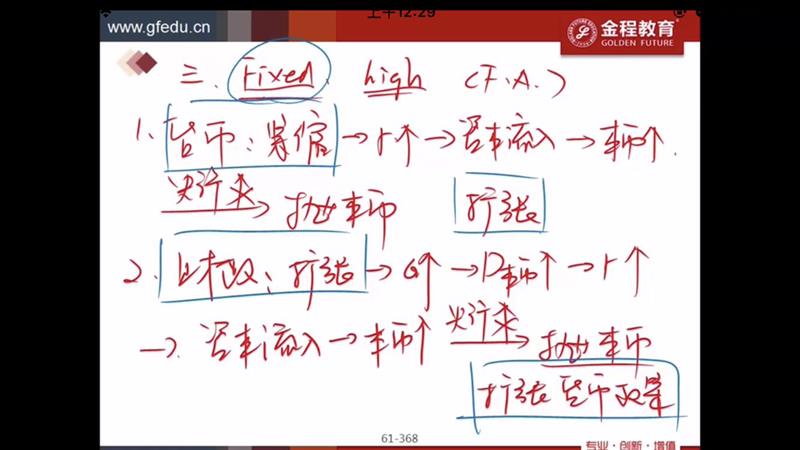 上午12:29
www.gfedu.cn
金程教育
GOLDEN FUTURE
三. Fixed. high (F.A.)
1. 货币:紧缩→r↑→资本流入→本币↑.
央行来→抛本币 扩张
2. 财政:扩张→G↑→D本币↑→r↑
→资本流入→本币↑ 央行来→抛本币
扩张货币政策
61-368
专业·创新·增值